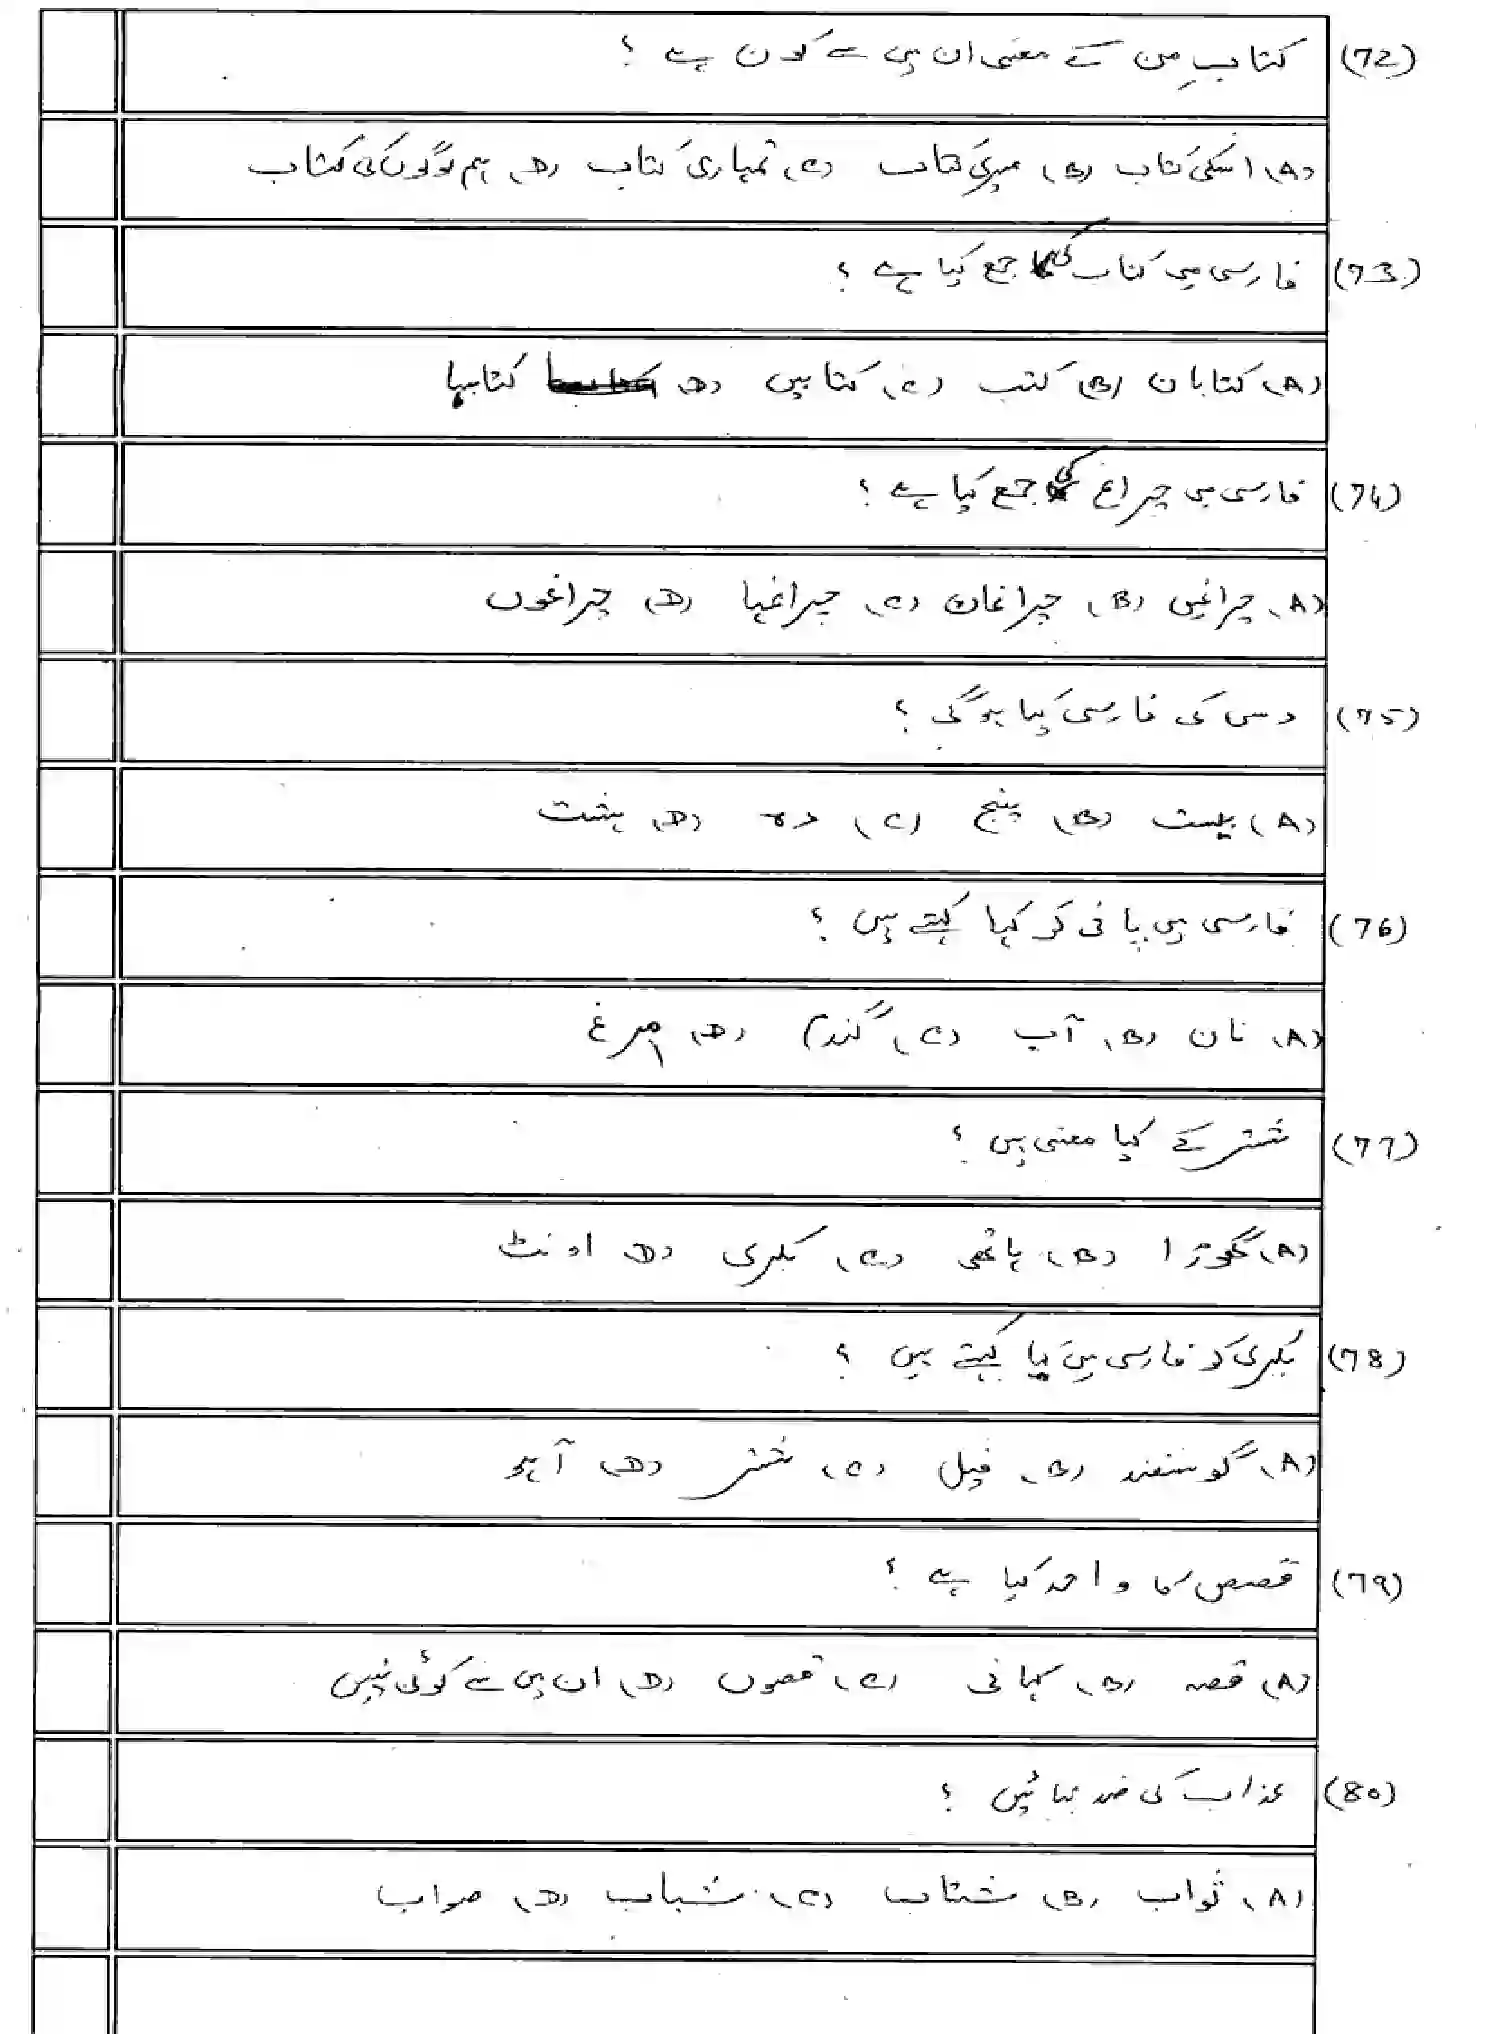 (72) کتابِ من کے معنی ان میں سے کون ہے ؟
(A) اسکی کتاب (B) میری کتاب (C) تمہاری کتاب (D) ہم لوگوں کی کتاب
(73) فارسی میں کتاب کی جمع کیا ہے ؟
(A) کتابان (B) کتب (C) کتابیں (D) کتابہا
(74) فارسی میں چراغ کی جمع کیا ہے ؟
(A) چراغیں (B) چراغان (C) چراغہا (D) چراغوں
(75) دس کی فارسی کیا ہوگی ؟
(A) بیست (B) پنج (C) دہ (D) ہشت
(76) فارسی میں پانی کو کیا کہتے ہیں ؟
(A) نان (B) آب (C) گندم (D) مرغ
(77) شتر کے کیا معنی ہیں ؟
(A) گھوڑا (B) ہاتھی (C) بکری (D) اونٹ
(78) بکری کو فارسی میں کیا کہتے ہیں ؟
(A) گوسفند (B) فیل (C) شتر (D) آہو
(79) قصص کا واحد کیا ہے ؟
(A) قصہ (B) کہانی (C) قصوں (D) ان میں سے کوئی نہیں
(80) عذاب کی ضد بتائیں ؟
(A) ثواب (B) شتاب (C) شباب (D) صواب